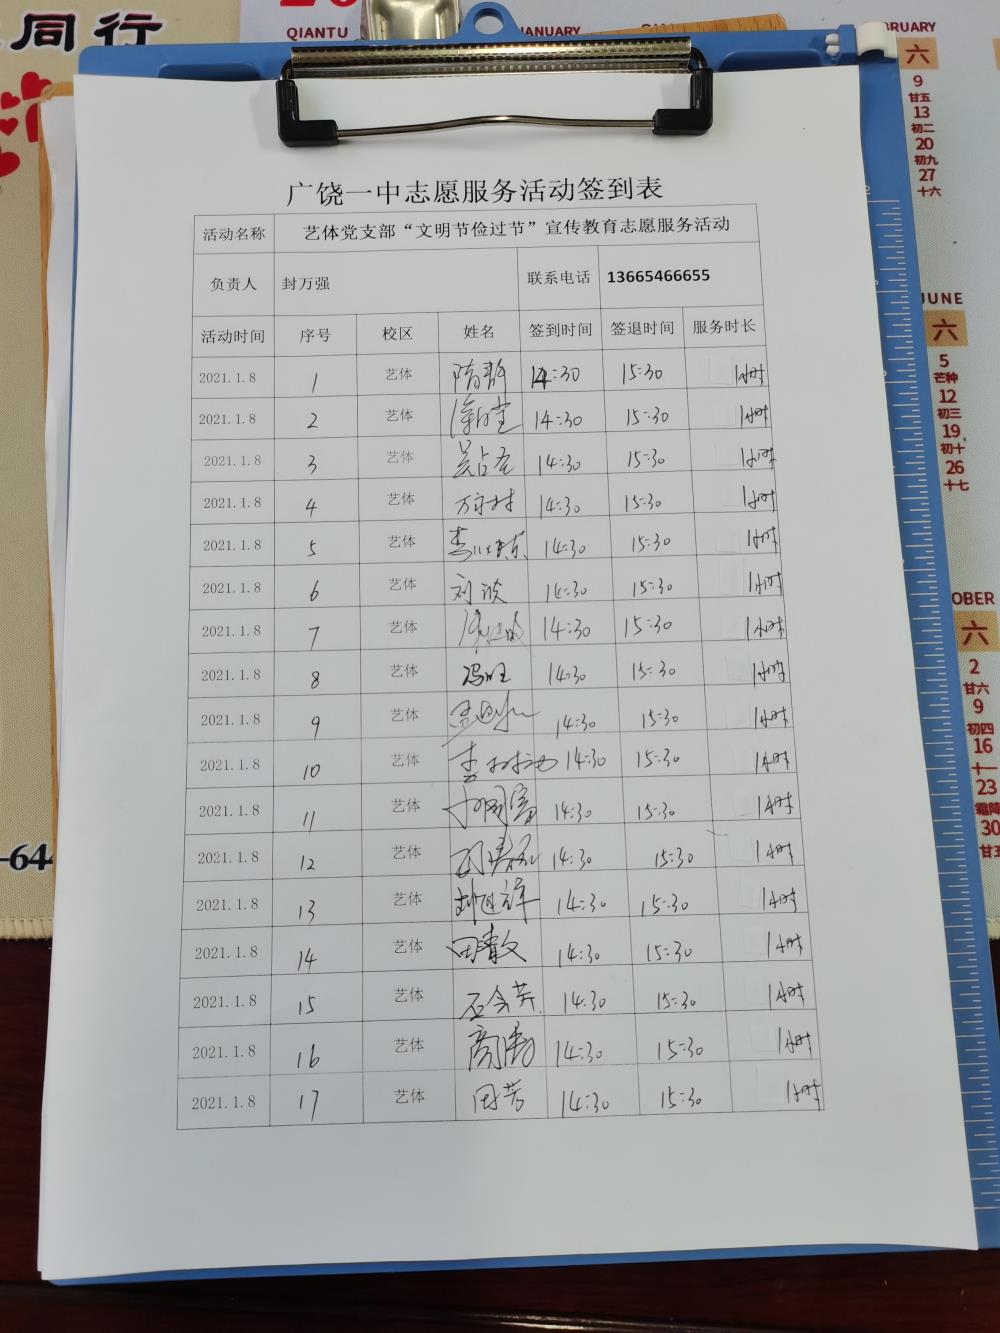 同行
QIANTU
JANUARY
RUARY
广饶一中志愿服务活动签到表
活动名称 艺体党支部“文明节俭过节”宣传教育志愿服务活动
负责人 封万强 联系电话 13665466655
活动时间 序号 校区 姓名 签到时间 签退时间 服务时长
2021.1.8 1 艺体 隋静 14:30 15:30 1小时
2021.1.8 2 艺体 14:30 15:30 1小时
2021.1.8 3 艺体 吴占圣 14:30 15:30 1小时
2021.1.8 4 艺体 万守村 14:30 15:30 1小时
2021.1.8 5 艺体 14:30 15:30 1小时
2021.1.8 6 艺体 刘波 14:30 15:30 1小时
2021.1.8 7 艺体 14:30 15:30 1小时
2021.1.8 8 艺体 冯旺 14:30 15:30 1小时
2021.1.8 9 艺体 14:30 15:30 1小时
2021.1.8 10 艺体 14:30 15:30 1小时
2021.1.8 11 艺体 14:30 15:30 1小时
2021.1.8 12 艺体 14:30 15:30 1小时
2021.1.8 13 艺体 14:30 15:30 1小时
2021.1.8 14 艺体 田敬文 14:30 15:30 1小时
2021.1.8 15 艺体 石会芳 14:30 15:30 1小时
2021.1.8 16 艺体 14:30 15:30 1小时
2021.1.8 17 艺体 田芳 14:30 15:30 1小时
六
9
廿五
13
初二
20
初九
27
十六
JUNE
六
5
芒种
12
初三
19
初十
26
十七
OBER
六
2
廿六
9
初四
16
十一
23
霜降
30
廿五
-64